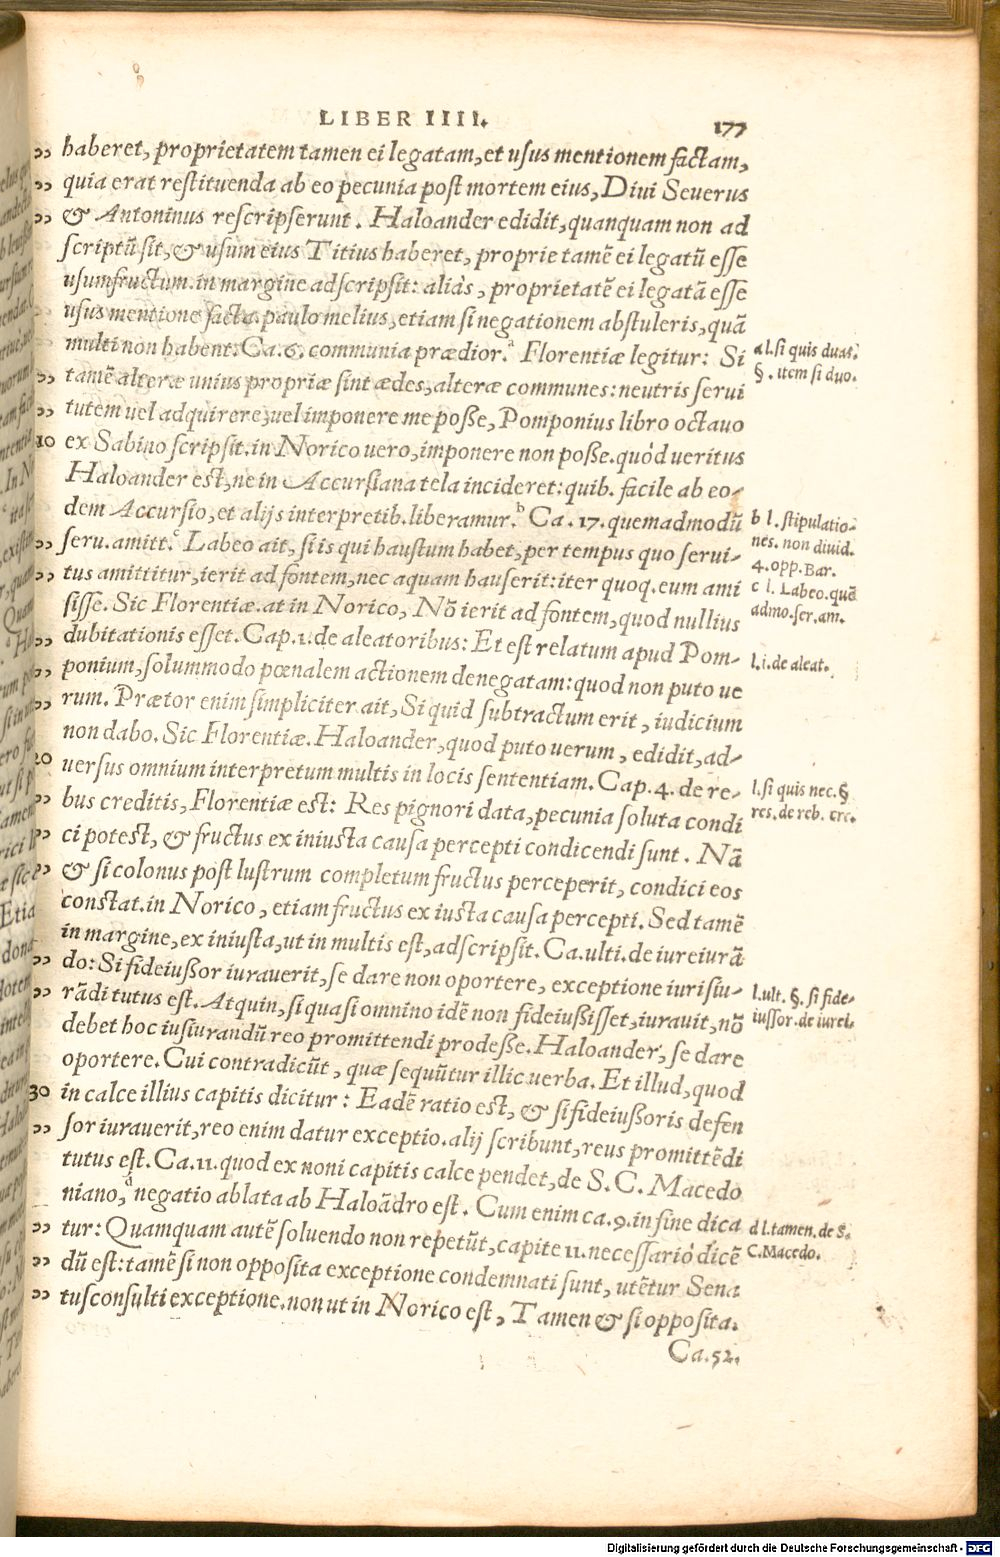 LIBER IIII. 177
„ haberet, proprietatem tamen ei legatam, et usus mentionem factam,
„ quia erat restituenda ab eo pecunia post mortem eius, Divi Severus
„ & Antoninus rescripserunt. Haloander edidit, quanquam non ad
scriptũ sit, & usum eius Titius haberet, proprie tamẽ ei legatũ esse
usumfructum. in margine adscripsit: aliàs, proprietatẽ ei legatã esse
usus mentione facta. paulo melius, etiam si negationem abstuleris, quã
multi non habent. Ca. 6. communia prædior.ᵃ Florentiæ legitur: Si
„ tamẽ alteræ unius propriæ sint ædes, alteræ communes: neutris servi
„ tutem uel adquirere, uel imponere me poße, Pomponius libro octavo
10 ex Sabino scripsit. in Norico uero, imponere non poße. quòd ueritus
Haloander est, ne in Accursiana tela incideret: quib. facile ab eo-
dem Accursio, et alijs interpretib. liberamur.ᵇ Ca. 17. quemadmodũ
„ seru. amitt.ᶜ Labeo ait, si is qui haustum habet, per tempus quo servi-
„ tus amittitur, ierit ad fontem, nec aquam hauserit: iter quoq. eum ami
sisse. Sic Florentiæ. at in Norico, Nõ ierit ad fontem, quod nullius
„ dubitationis esset. Cap. 1. de aleatoribus: Et est relatum apud Pom-
„ ponium, solummodo pœnalem actionem denegatam: quod non puto ue
„ rum. Prætor enim simpliciter ait, Si quid subtractum erit, iudicium
non dabo. Sic Florentiæ. Haloander, quod puto uerum, edidit, ad-
20 uersus omnium interpretum multis in locis sententiam. Cap. 4. de re-
„ bus creditis, Florentiæ est: Res pignori data, pecunia soluta condi
„ ci potest, & fructus ex iniusta causa percepti condicendi sunt. Nã
„ & si colonus post lustrum completum fructus perceperit, condici eos
constat. in Norico, etiam fructus ex iusta causa percepti. Sed tamẽ
in margine, ex iniusta, ut in multis est, adscripsit. Ca. ulti. de iureiurã
„ do: Si fideiußor iuraverit, se dare non oportere, exceptione iurisiu-
„ rãdi tutus est. Atquin, si quasi omnino idẽ non fideiußisset, iurauit, nõ
debet hoc iusiurandũ reo promittendi prodeße. Haloander, se dare
oportere. Cui contradicũt, quæ sequũtur illic uerba. Et illud, quod
30 in calce illius capitis dicitur: Eadẽ ratio est, & si fideiußoris defen
„ sor iurauerit, reo enim datur exceptio. alij scribunt, reus promittẽdi
tutus est. Ca. 11. quod ex noni capitis calce pendet, de S. C. Macedo
niano,ᵈ negatio ablata ab Haloãdro est. Cum enim ca. 9. in fine dica
„ tur: Quamquam autẽ soluendo non repetũt, capite 11. necessariò dicẽ
„ dũ est: tamẽ si non opposita exceptione condemnati sunt, utẽtur Sena
„ tusconsulti exceptione. non ut in Norico est, Tamen & si opposita.
Ca. 52.
a l. si quis duas.
§. item si duo.
b l. stipulatio-
nes. non diuid.
4. opp. Bar.
c l. Labeo. quẽ
admo. ser. am.
l. i. de aleat.
l. si quis nec. §
res. de reb. cre.
l. ult. §. si fide-
iussor. de iurei.
d l. tamen. de S.
C. Macedo.
Digitalisierung gefördert durch die Deutsche Forschungsgemeinschaft - DFG